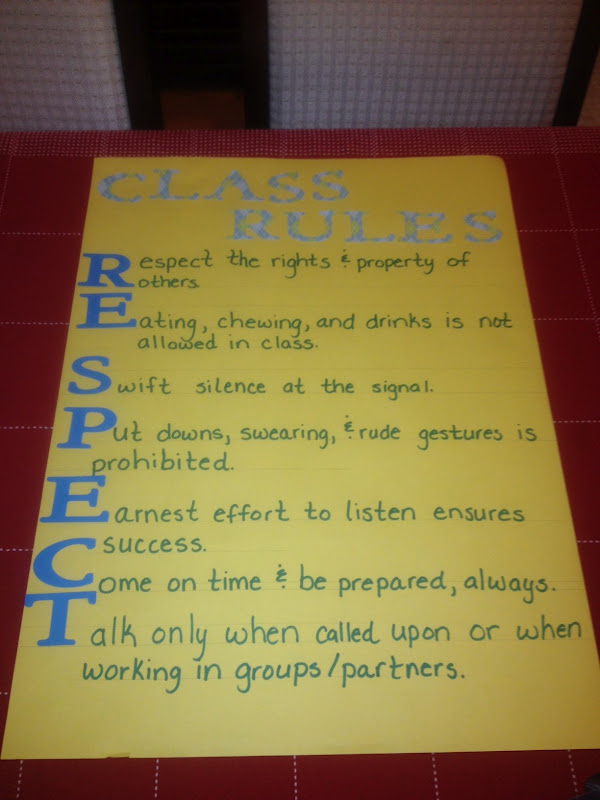 CLASS
RULES
Respect the rights & property of
others.
Eating, chewing, and drinks is not
allowed in class.
Swift silence at the signal.
Put downs, swearing, & rude gestures is
prohibited.
Earnest effort to listen ensures
success.
Come on time & be prepared, always.
Talk only when called upon or when
working in groups/partners.